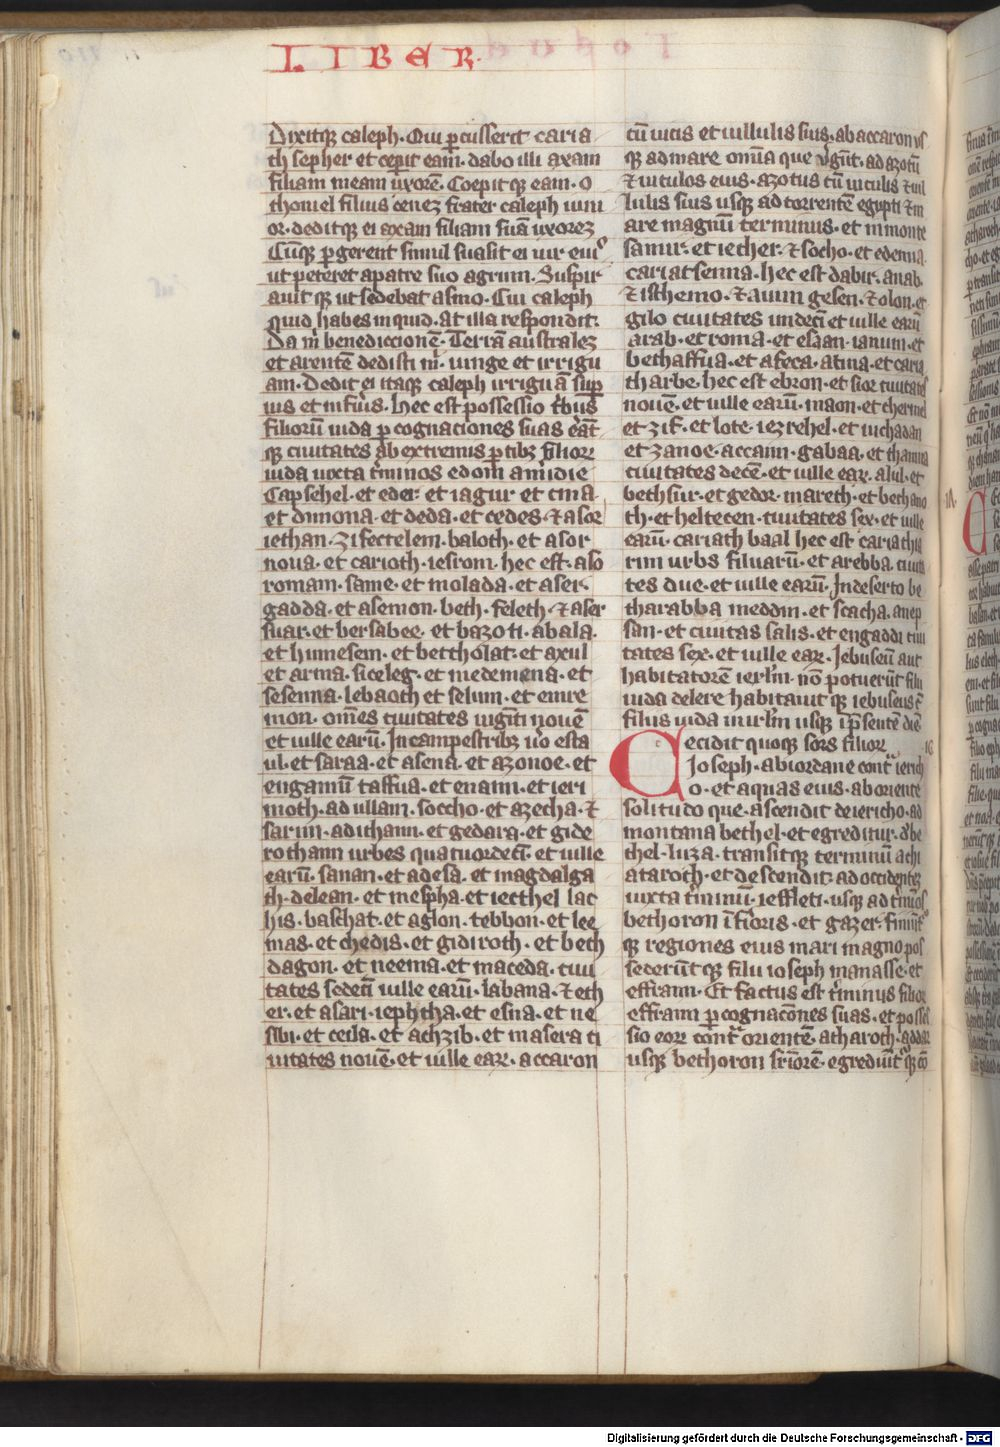 LIBER
Dixitqꝫ caleph· Qui ꝑcusserit caria
th sepher et ceperit eam· dabo illi axam
filiam meam vxorē· Coepitqꝫ eam· o
thoniel filius cenez frater caleph iuni
or· deditqꝫ ei axam filiam suā vxorez
Cūqꝫ ꝑgerent simul suasit ei vir eius
ut peteret a patre suo agrum· Suspir
auit qꝫ ut sedebat asino· Cui caleph
quid habes inquid· at illa respondit·
Da m̄ benediccionē· Terrā australez
et arentē dedisti m̄· iunge et irrigu
am· Dedit ei itaqꝫ caleph irriguā sup
ius et inferius· Hec est possessio tribus
filiorū iuda ꝑ cognaciones suas erāt
qꝫ ciuitates ab extremis ꝑtibꝫ filiorꝫ
iuda iuxta t̄minos edom a m̄idie
Capsehel· et eder· et iagur et cina·
et dimona· et deda· et cedes· et asor
iethan· zifectelem· baloth· et asor
noua· et carioth· iesrom· hec est· aso
romam· same· et molada· et aser·
gadda· et asemon· beth· feleth· et aser
suar· et bersabee· et bazoti· abala·
et himesem· et bettholat· et axul
et arma· siceleg· et medemena· et
sesenna· lebaoth et selum· et enre
mon· om̄es ciuitates uigīti nouē
et uille earū· In campestribꝫ u̇o esta
ul· et saraa· et asena· et azonoe· et
engannū taffua· et enaim· et ieri
moth· adullam· soccho· et azecha· et
sarim· adithaim· et gedara· et gide
rothaim urbes quatuordecī· et uille
earū· sanan· et adesa· et magdalga
th· delean· et mespha· et iecthel lac
his· baschat· et aglon· tebbon· et lee
mas· et chedis· et gidiroth· et beth
dagon· et neema· et maceda· ciui
tates sedecī uille earū· labana· et eth
er· et asari· iephtha· et esna· et ne
sibi· et ceila· et achzib· et masera ci
uitates nouē· et uille earꝫ· accaron
cū uicis et uillulis suis· ab accaron vs
qꝫ ad mare om̄ia que v̓gūt· ad azotū
et uiculos eius· azotus cū uiculis et uil
lulis suis usqꝫ ad torrentē egypti et m
are magnū terminus· et in monte
samir· et iecher· et socho· et edenna·
cariatsenna· hec est dabir· anab·
et isthemo· et anim gesen· et olon· et
gilo ciuitates undecī et uille earū
arab· et roma· et esaan· ianum· et
bethaffua· et afeca· atina· et caria
tharbe· hec est ebron· et sior ciuitates
nouē· et uille earū· maon· et chermel
et zif· et lote· iezrehel· et iuchadan
et zanoe· accaim· gabaa· et thamna
ciuitates decē· et uille earꝫ· alul· et
bethsur· et gedor· mareth· et bethano
th· et heltecen· ciuitates sex· et uille
earū· cariath baal hec est cariathia
rim urbs siluarū· et arebba· ciuita
tes due· et uille earū· In deserto be
tharabba meddin· et scacha· anep
san· et ciuitas salis· et engaddi ciui
tates sex· et uille earꝫ· Iebuseū aut
habitatorē ierl̄m· nō potuerūt filii
iuda delere habitauit qꝫ iebuseus c̄
filiis iuda in irl̄m usqꝫ in p̄sentē diē·
Cecidit quoqꝫ sors filiorꝫ
Ioseph· ab iordane cont̄ ierich
o· et aquas eius· ab oriente
solitudo que· ascendit de iericho· ad
montana bethel· et egreditur· de be
thel· luza· transitqꝫ terminū achi
ataroth· et descendit ad occidentē
iuxta t̄minū· ieffleti· usqꝫ ad t̄minos
bethoron īferioris· et gazer· finiūt̄
qꝫ regiones eius mari magno pos
sederūtqꝫ filii ioseph manasse· et
effraim· Et factus est t̄minus filiorꝫ
effraim ꝑ cognacōnes suas· et posses
sio eorꝫ cont̄ orientē· atharoth· addar
usqꝫ bethoron superiorē· egrediūt̄qꝫ cō
Digitalisierung gefördert durch die Deutsche Forschungsgemeinschaft - DFG